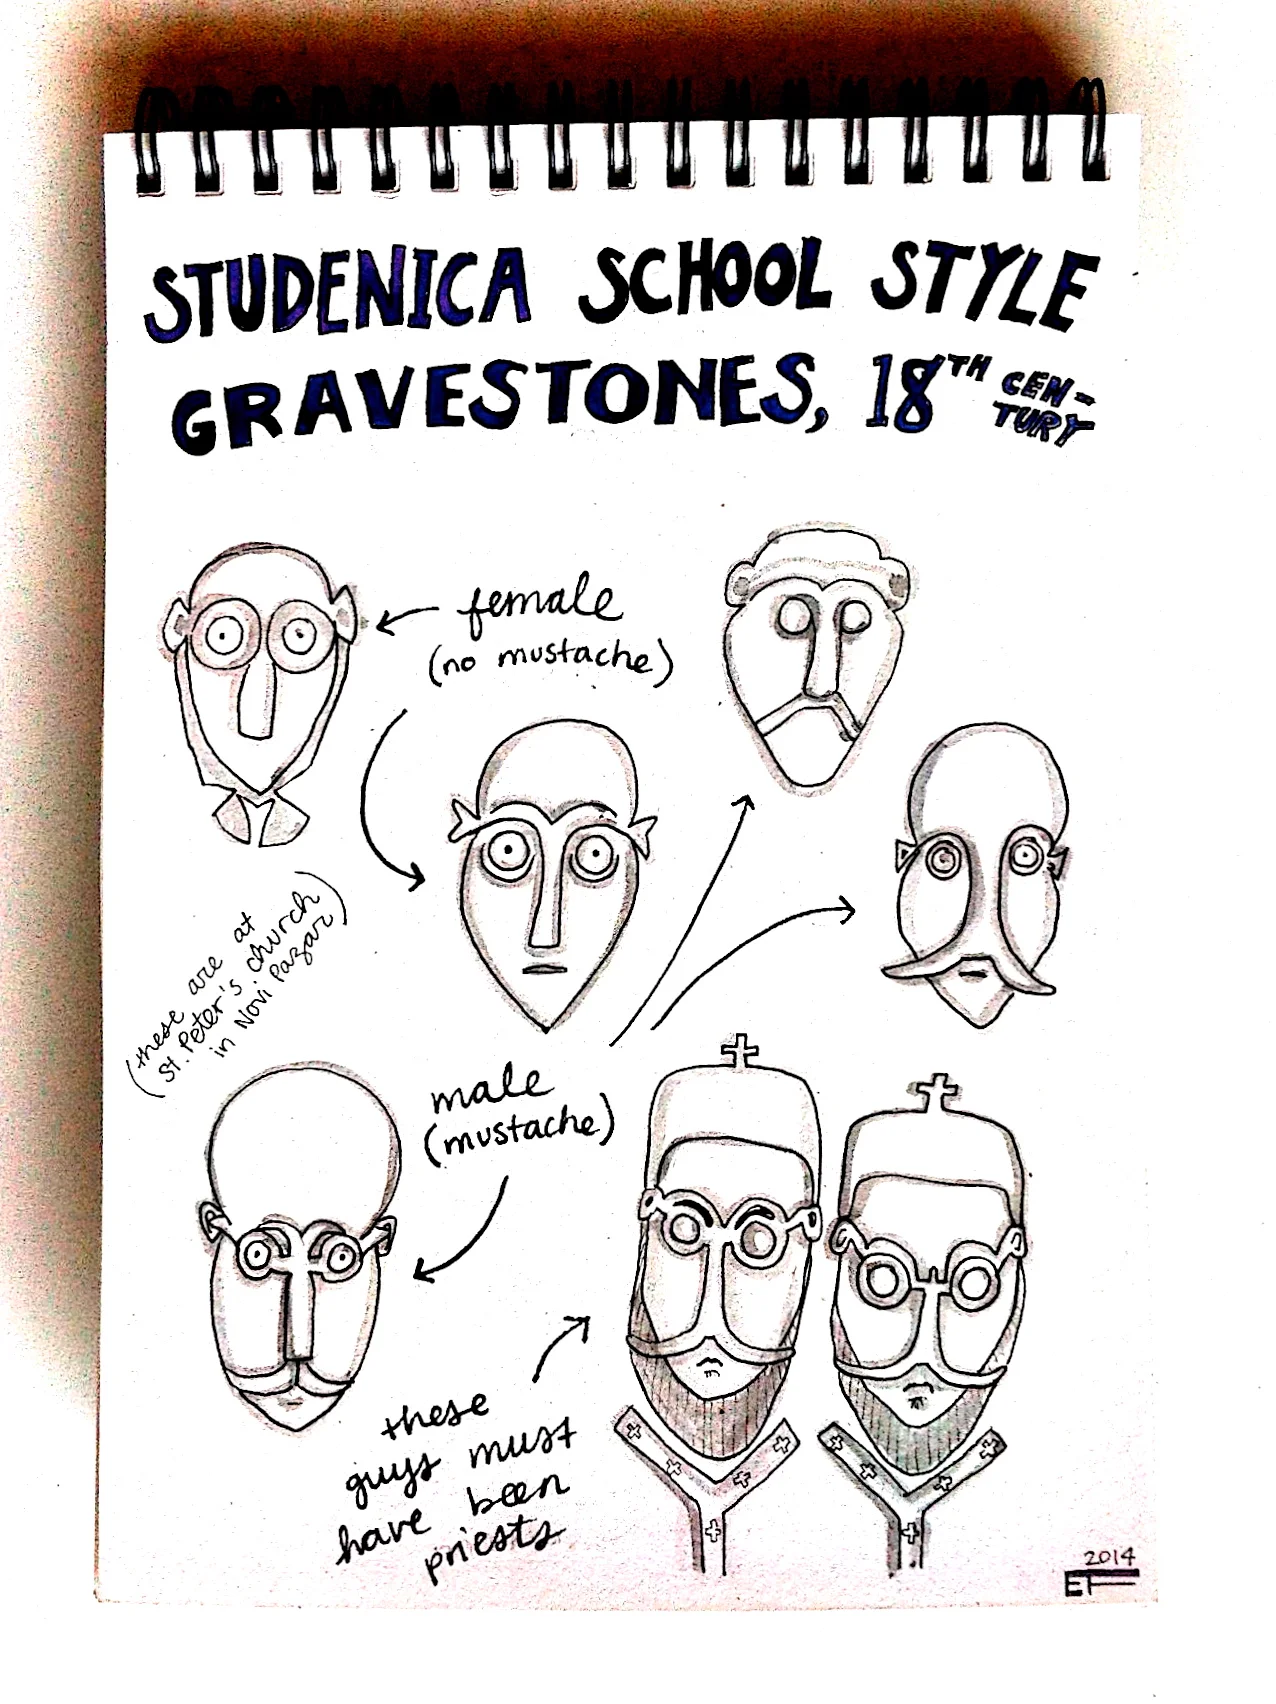 STUDENICA SCHOOL STYLE
GRAVESTONES, 18TH CEN-
TURY
female
(no mustache)
(these are at
St. Peter's church
in Novi Pazar)
male
(mustache)
these
guys must
have been
priests
2014
EF